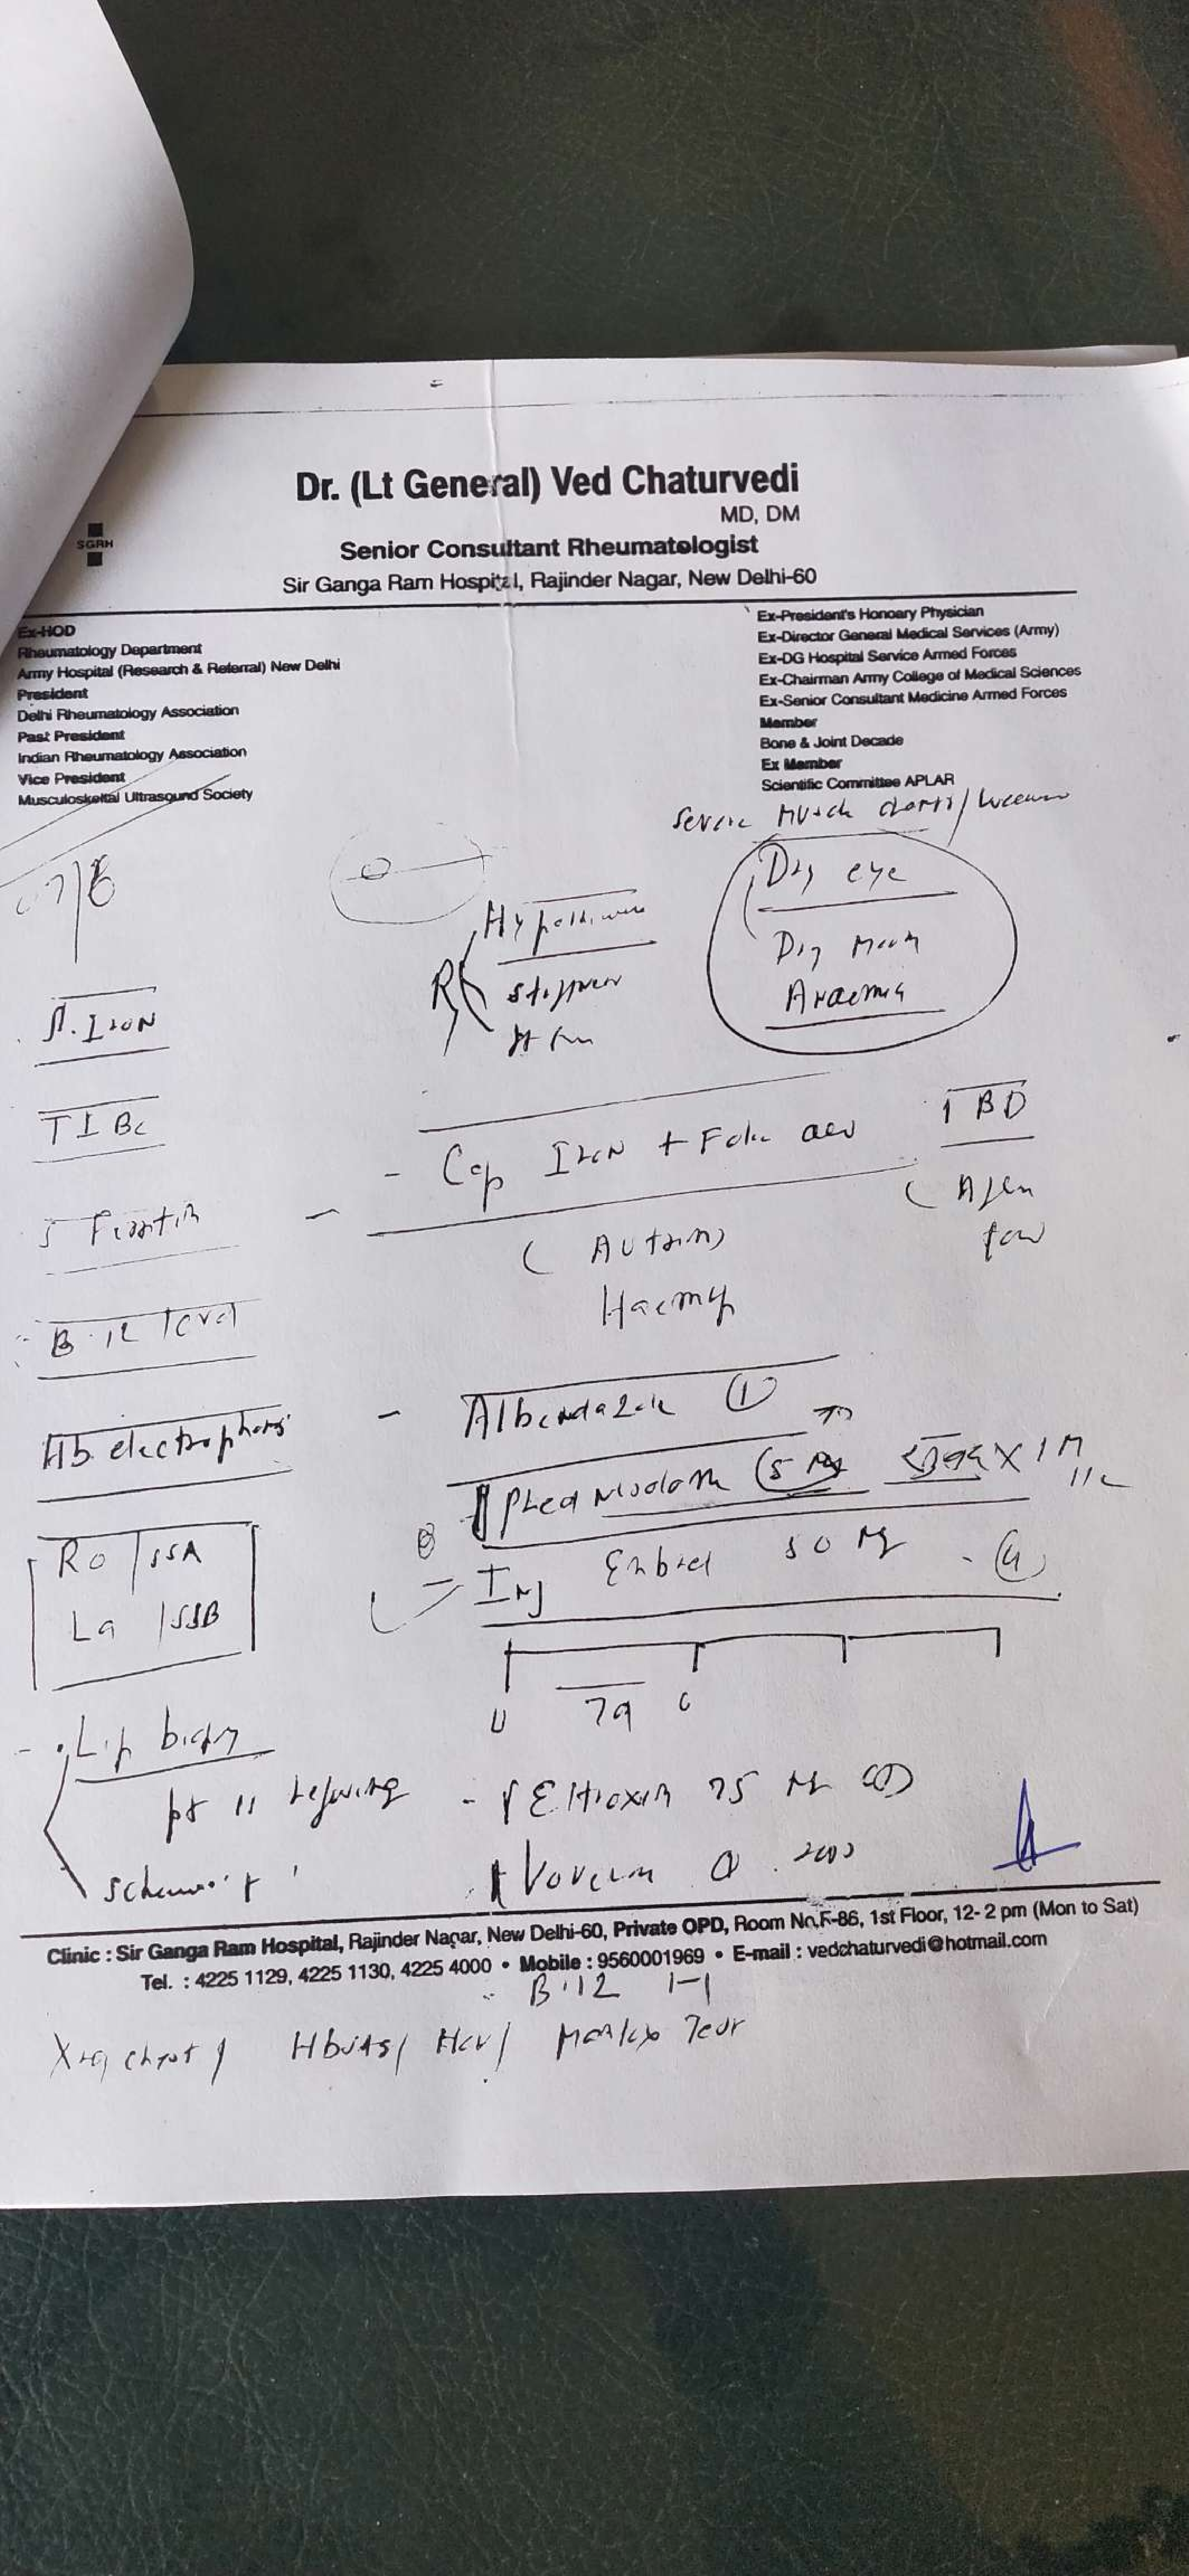 Dr. (Lt General) Ved Chaturvedi
MD, DM
SGRH
Senior Consultant Rheumatologist
Sir Ganga Ram Hospital, Rajinder Nagar, New Delhi-60
Ex-HOD
Rheumatology Department
Army Hospital (Research & Referral) New Delhi
President
Delhi Rheumatology Association
Past President
Indian Rheumatology Association
Vice President
Musculoskeltal Ultrasound Society
Ex-President's Honoary Physician
Ex-Director General Medical Services (Army)
Ex-DG Hospital Service Armed Forces
Ex-Chairman Army College of Medical Sciences
Ex-Senior Consultant Medicine Armed Forces
Member
Bone & Joint Decade
Ex Member
Scientific Committee APLAR
Severe
Dry eye
Dry
Anaemia
S. Iron
TIBC
S Ferritin
B.12 level
Hb electrophoresis
Ro/SSA
La/SSB
- Lip biopsy
pt is refusing
- Cap Iron + Folic 1 BD
(Autrin)
- Albendazole 1
(5 mg) X 1 M
- Inj Enbrel 50 Mg - (4)
7d
- Eltroxin 75 OD
Voveran
Clinic : Sir Ganga Ram Hospital, Rajinder Nagar, New Delhi-60, Private OPD, Room No.F-86, 1st Floor, 12- 2 pm (Mon to Sat)
Tel. : 4225 1129, 4225 1130, 4225 4000 • Mobile : 9560001969 • E-mail : vedchaturvedi@hotmail.com
B.12 1-1
X-ray chest / HbsAg / HCV / Mantoux Test